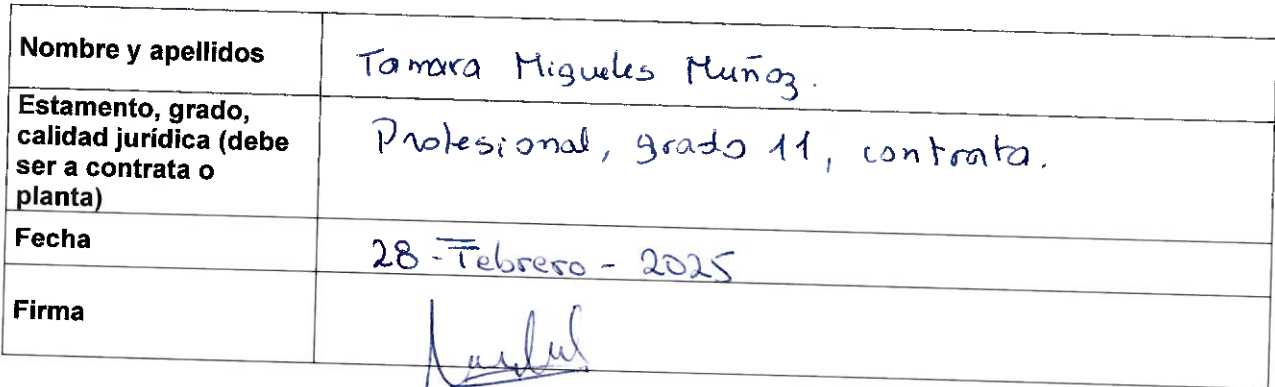 Nombre y apellidos
Tamara Migueles Muñoz.
Estamento, grado,
calidad jurídica (debe
ser a contrata o
planta)
Profesional, grado 11, contrata.
Fecha
28-Febrero-2025
Firma